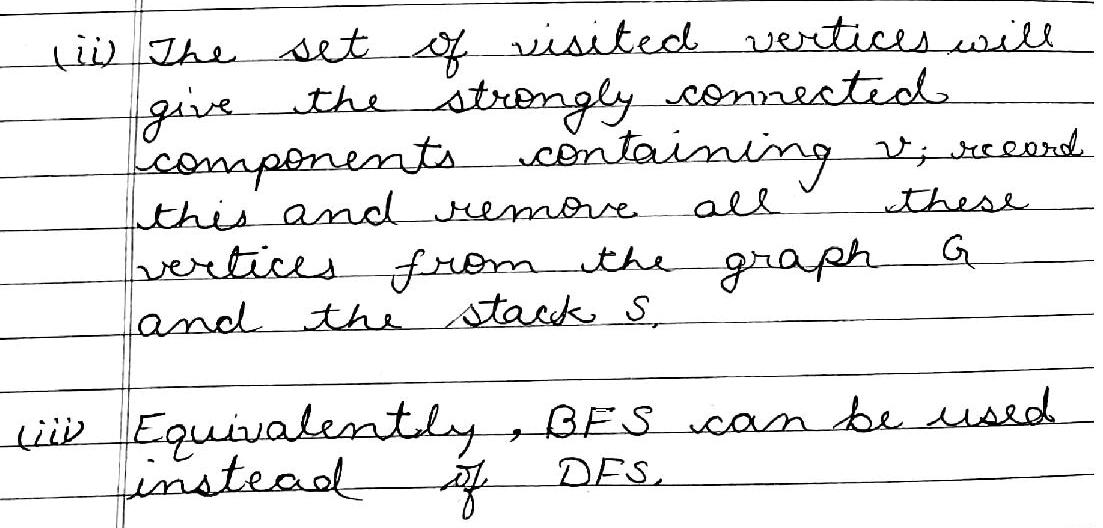 (ii) The set of visited vertices will
give the strongly connected
components containing v; record
this and remove all these
vertices from the graph G
and the stack S.
(iii) Equivalently, BFS can be used
instead of DFS.